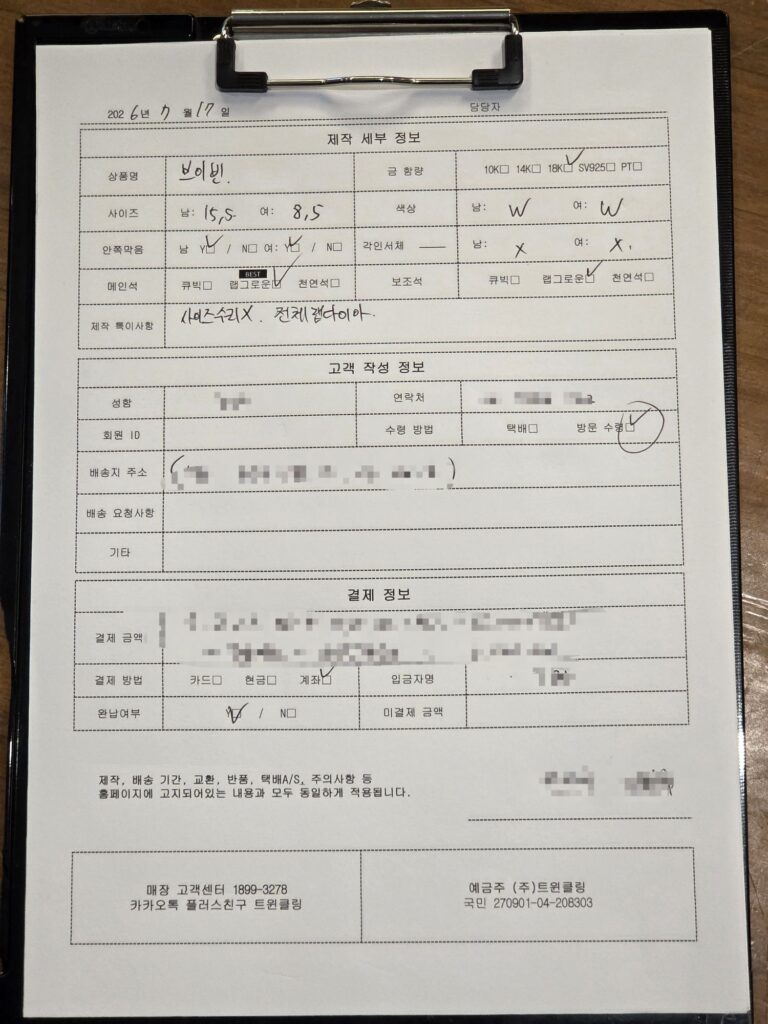 2026년 7월 17일 담당자
제작 세부 정보
상품명 브이빈. 금 함량 10K□ 14K□ 18K☑ SV925□ PT□
사이즈 남: 15,5 여: 8,5 색상 남: W 여: W
안쪽막음 남 Y☑ / N□ 여: Y☑ / N□ 각인서체 남: x 여: x
BEST
메인석 큐빅□ 랩그로운☑ 천연석□ 보조석 큐빅□ 랩그로운☑ 천연석□
제작 특이사항 사이즈수리X. 전체랩다이아.
고객 작성 정보
성함 연락처
회원 ID 수령 방법 택배□ 방문 수령☑
배송지 주소
배송 요청사항
기타
결제 정보
결제 금액
결제 방법 카드□ 현금□ 계좌☑ 입금자명
완납여부 Y☑ / N□ 미결제 금액
제작, 배송 기간, 교환, 반품, 택배A/S, 주의사항 등
홈페이지에 고지되어있는 내용과 모두 동일하게 적용됩니다.
매장 고객센터 1899-3278
카카오톡 플러스친구 트윈클링
예금주 (주)트윈클링
국민 270901-04-208303